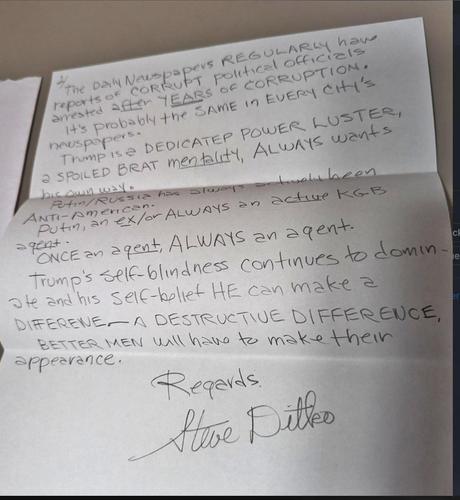 2/
The Daily Newspapers REGULARLY have
reports of CORRUPT political officials
arrested after YEARS of CORRUPTION.
It's probably the SAME in EVERY city's
newspapers.
Trump is a DEDICATED POWER LUSTER,
a SPOILED BRAT mentality, ALWAYS wants
his own way.
Putin/Russia has always actively been
ANTI-American.
Putin, an ex/or ALWAYS an active KGB
agent.
ONCE an agent, ALWAYS an agent.
Trump's self-blindness continues to domin-
ate and his self-belief HE can make a
DIFFERENE — A DESTRUCTIVE DIFFERENCE,
BETTER MEN will have to make their
appearance.
Regards.
Steve Ditko